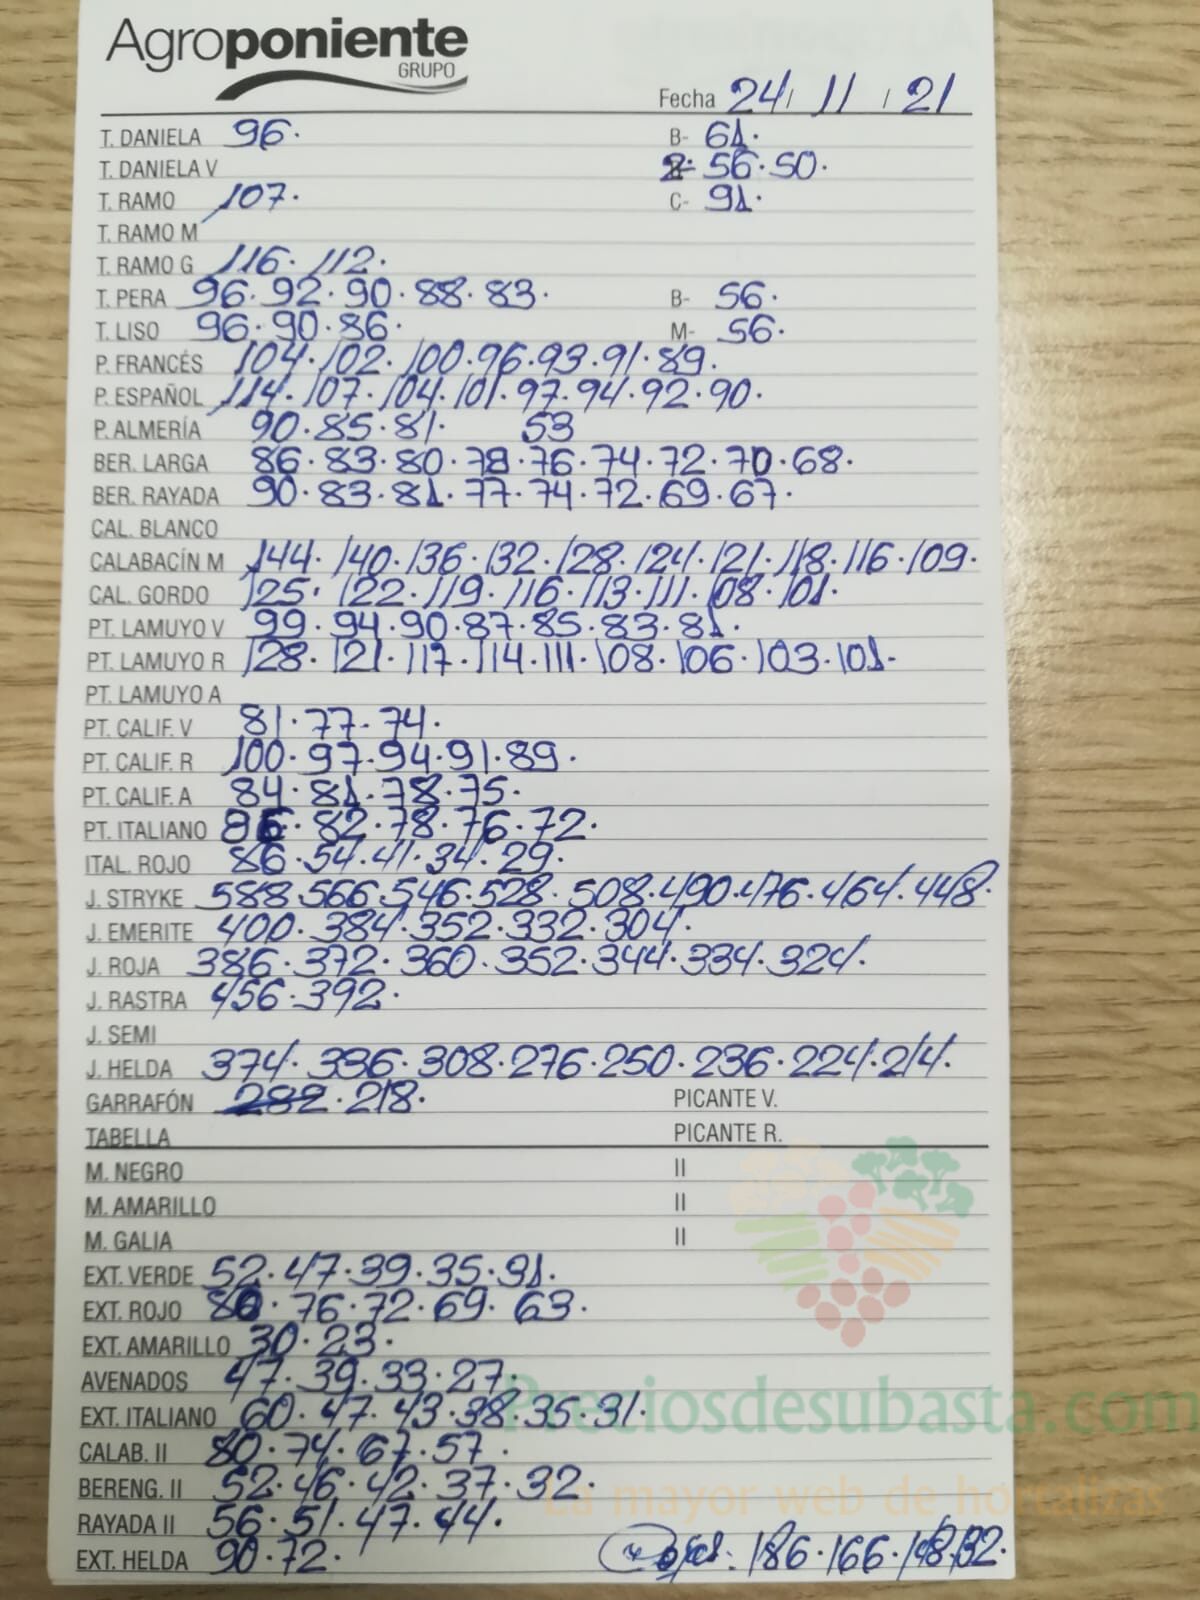 Agroponiente
GRUPO
Fecha 24/ 11 / 21
T. DANIELA 96. B- 61.
T. DANIELA V 56.50.
T. RAMO 107. C- 91.
T. RAMO M
T. RAMO G 116. 112.
T. PERA 96.92.90.88.83. B- 56.
T. LISO 96.90.86. M- 56.
P. FRANCÉS 104.102.100.96.93.91.89.
P. ESPAÑOL 114.107.104.101.97.94.92.90.
P. ALMERÍA 90.85.81. 53
BER. LARGA 86.83.80.78.76.74.72.70.68.
BER. RAYADA 90.83.81.77.74.72.69.67.
CAL. BLANCO
CALABACÍN M 144.140.136.132.128.124.121.118.116.109.
CAL. GORDO 125.122.119.116.113.111.108.101.
PT. LAMUYO V 99.94.90.87.85.83.81.
PT. LAMUYO R 128.121.117.114.111.108.106.103.101.
PT. LAMUYO A
PT. CALIF. V 81.77.74.
PT. CALIF. R 100.97.94.91.89.
PT. CALIF. A 84.81.78.75.
PT. ITALIANO 86.82.78.76.72.
ITAL. ROJO 86.54.41.34.29.
J. STRYKE 588.566.546.528.508.490.476.464.448.
J. EMERITE 400.384.352.332.304.
J. ROJA 386.372.360.352.344.334.324.
J. RASTRA 456.392.
J. SEMI
J. HELDA 374.336.308.276.250.236.224.214.
GARRAFÓN 282.218. PICANTE V.
TABELLA PICANTE R.
M. NEGRO II
M. AMARILLO II
M. GALIA II
EXT. VERDE 52.47.39.35.31.
EXT. ROJO 80.76.72.69.63.
EXT. AMARILLO 30.23.
AVENADOS 47.39.33.27.
EXT. ITALIANO 60.47.43.38.35.31.
CALAB. II 80.74.67.57.
BERENG. II 52.46.42.37.32.
RAYADA II 56.51.47.44.
EXT. HELDA 90.72. 186.166.148.132.
Preciosdesubasta.com
La mayor web de hortalizas